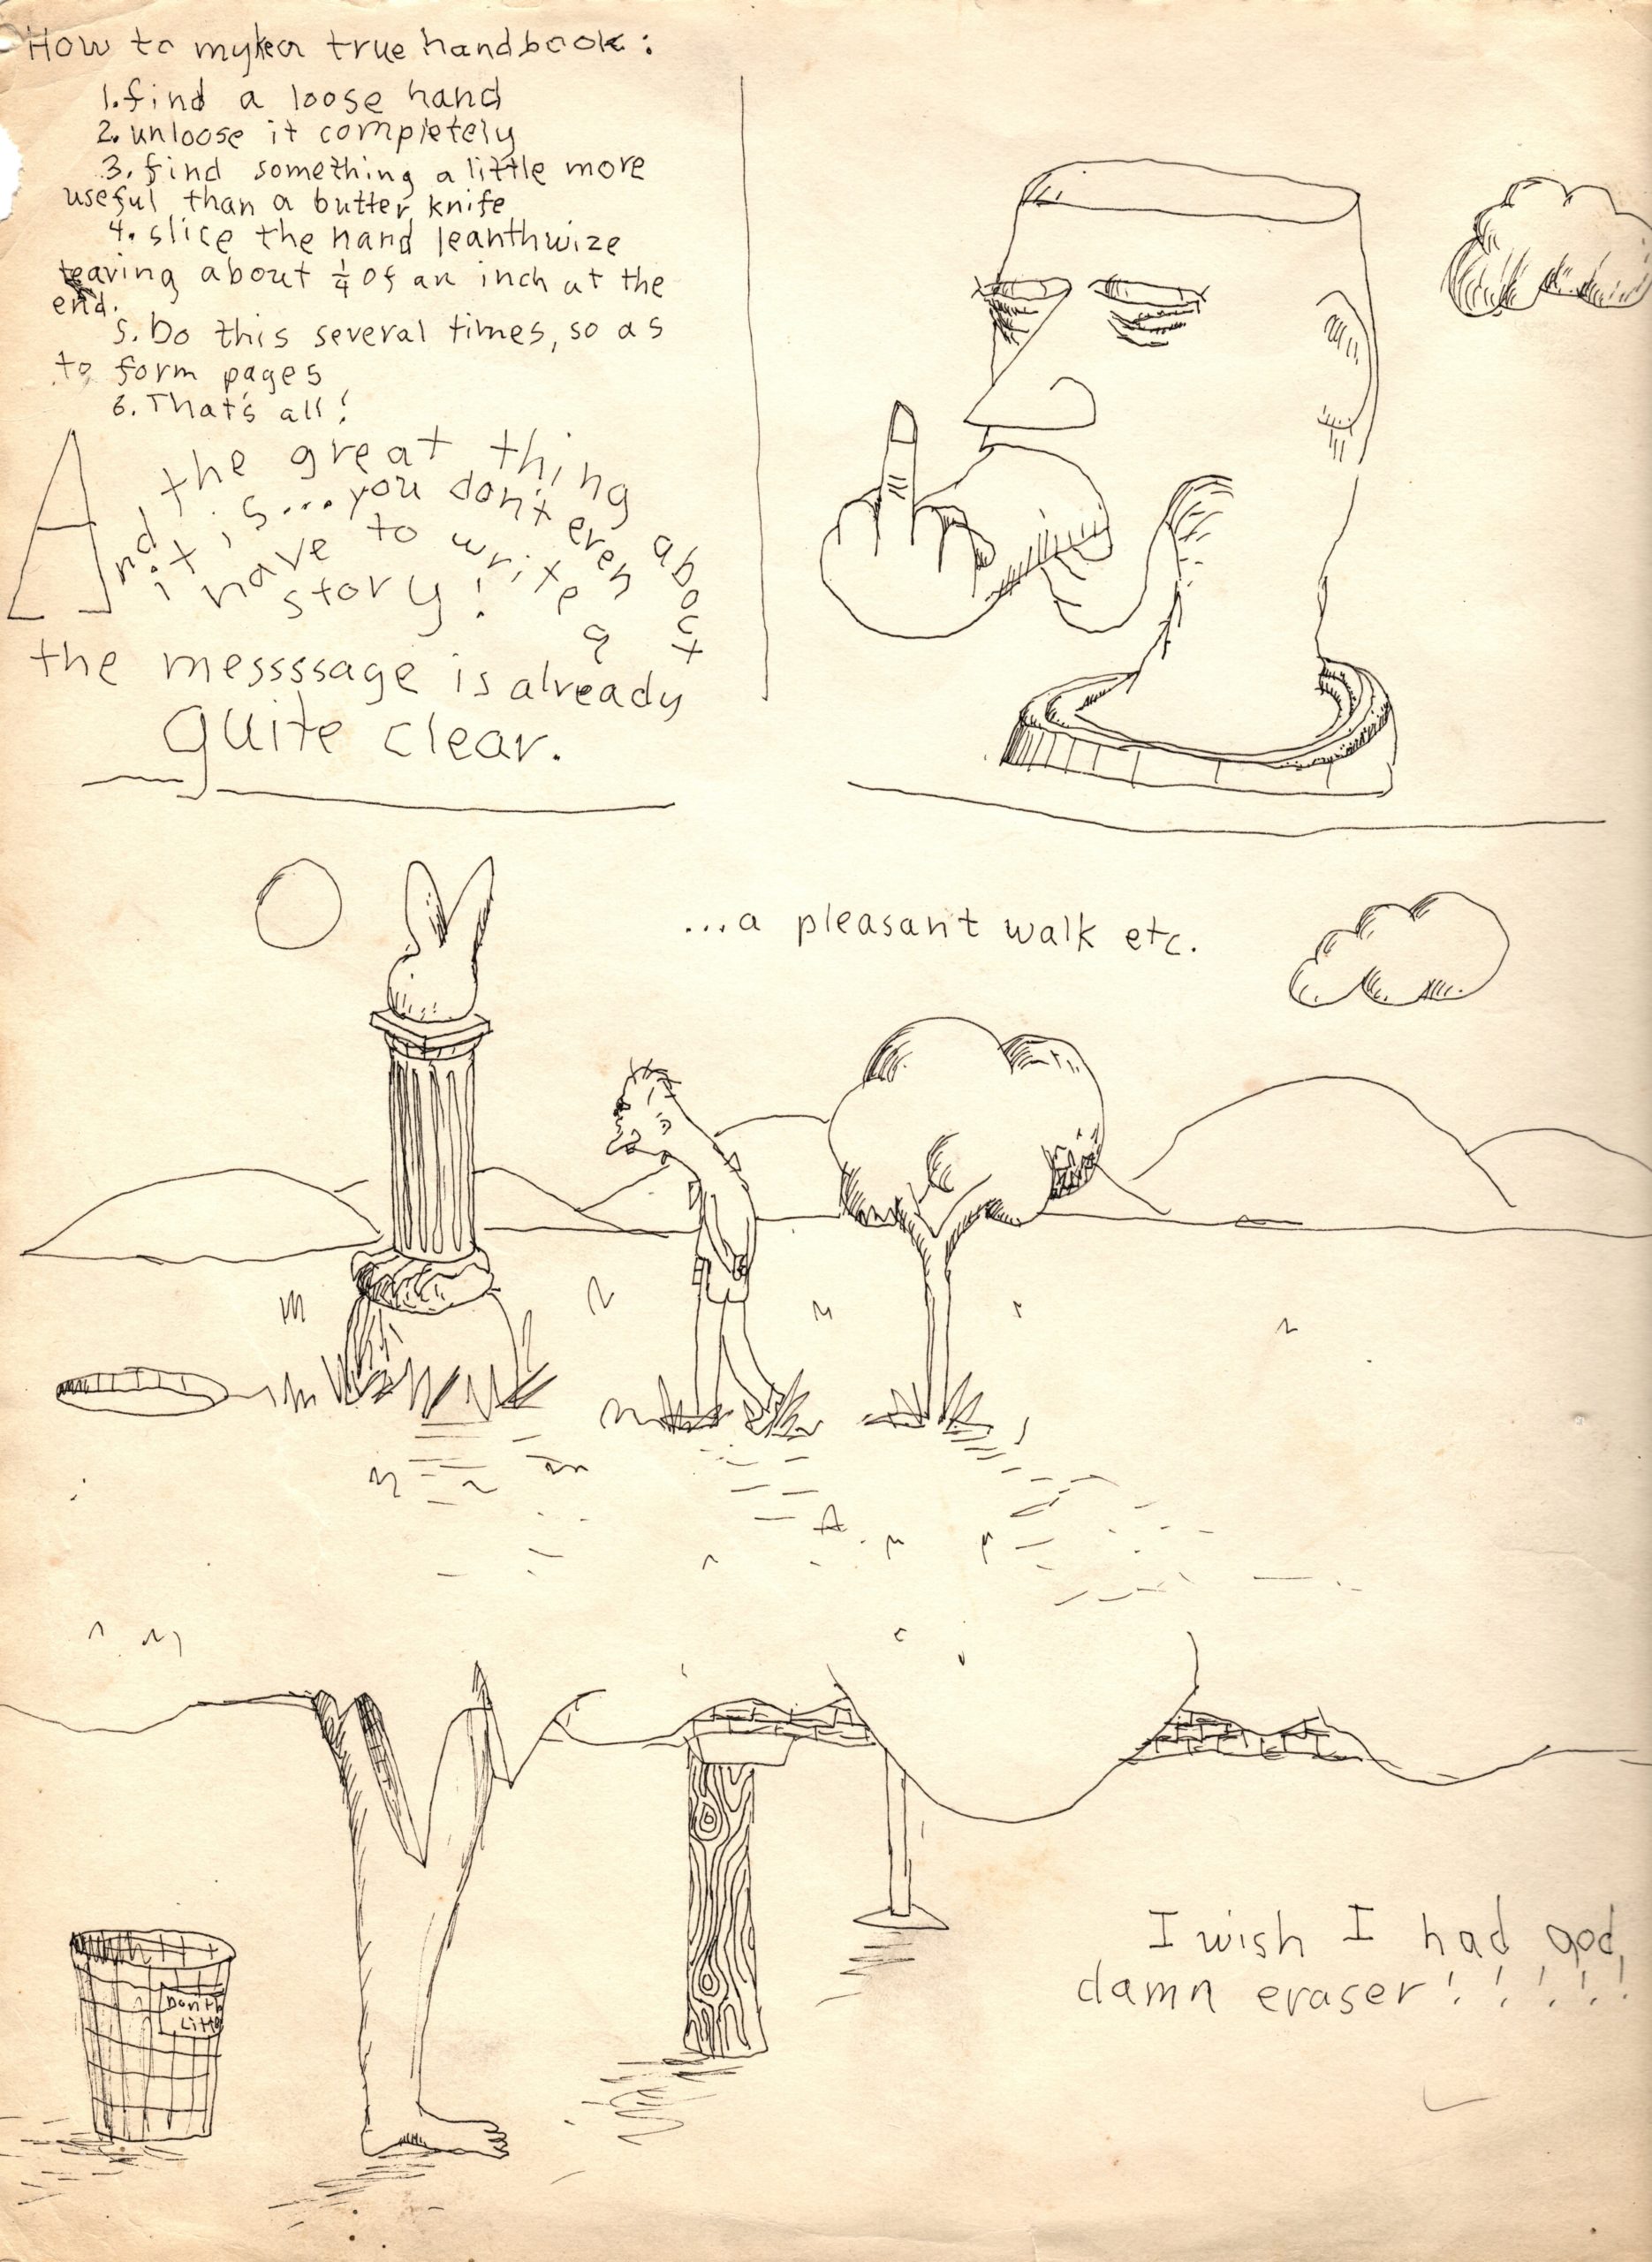 How to myker true handbook:
1. find a loose hand
2. unloose it completely
3. find something a little more
useful than a butter knife
4. slice the hand leanthwize
leaving about 1/4 of an inch at the
end.
5. Do this several times, so as
to form pages
6. That's all!
And the great thing about
it is... you don't even
have to write a
story!
the messssage is already
quite clear.
...a pleasant walk etc.
Don't
Litt
I wish I had god
damn eraser!!!!!